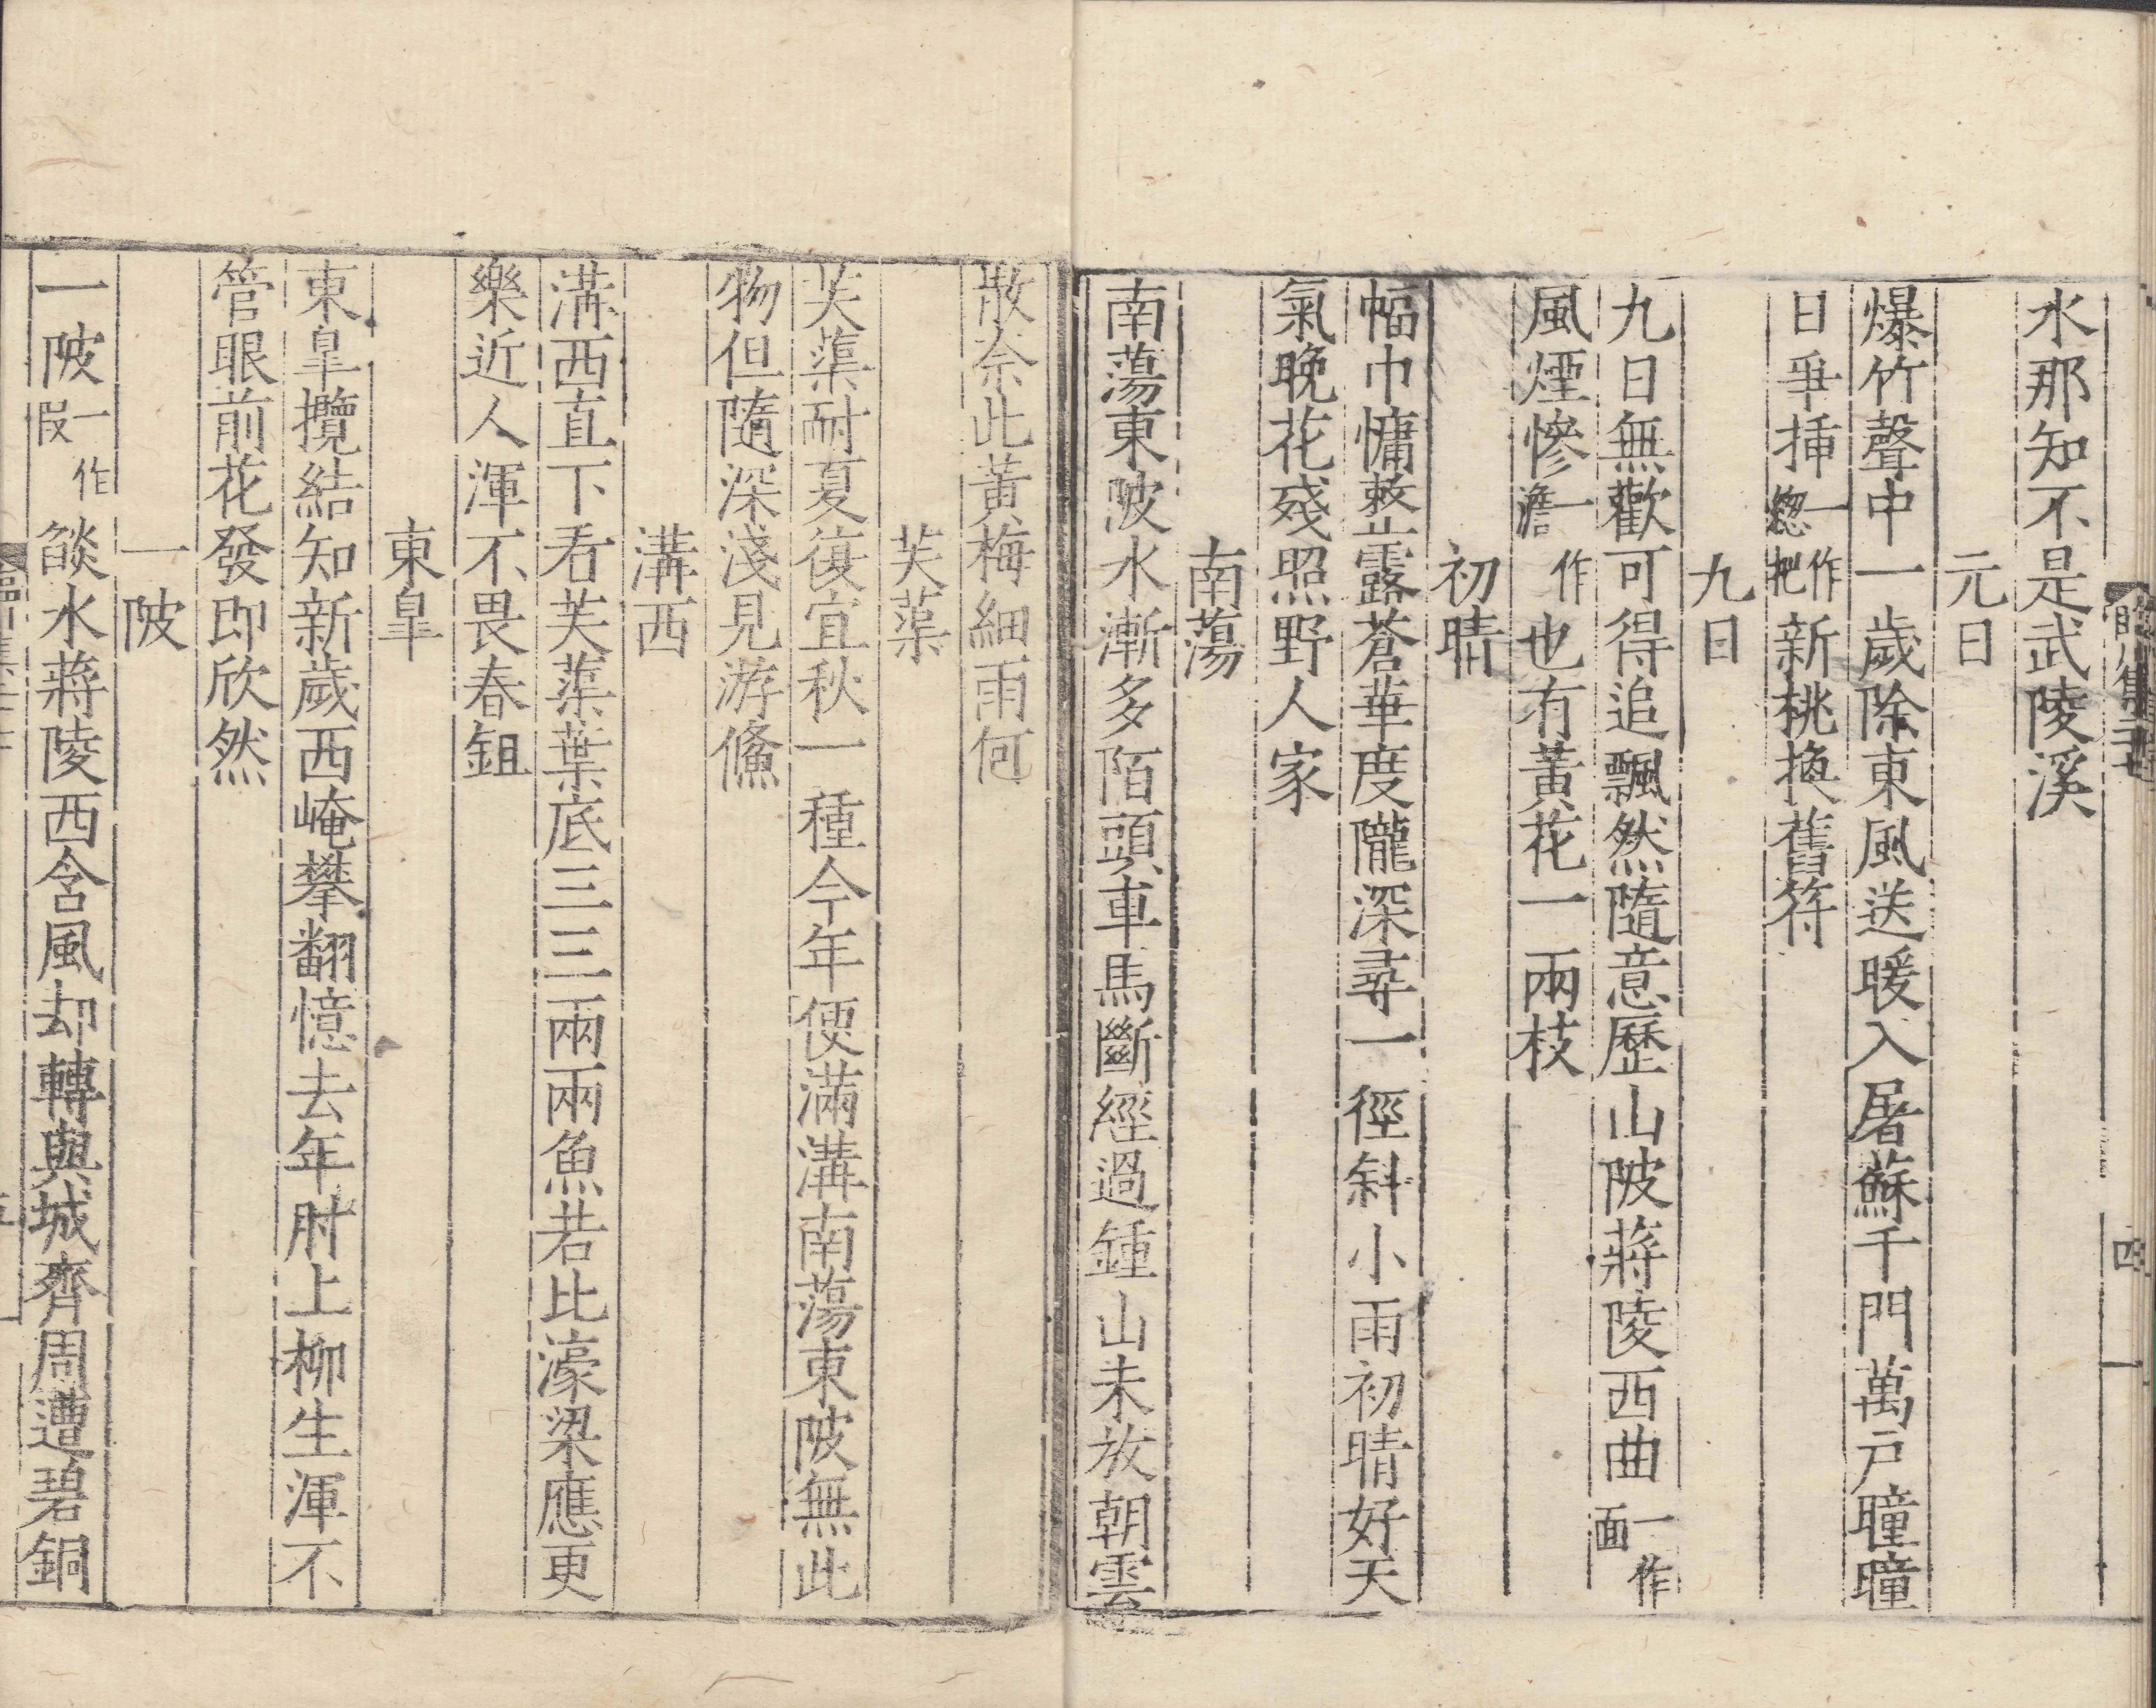 水那知不是武陵溪
元日
爆竹聲中一歲除東風送暖入屠蘇千門萬戸曈曈
日爭揷一作緫把新桃換舊符
九日
九日無歡可得追飄然隨意歷山陂蔣陵西曲一作面
風煙慘一作澹也有黃花一兩枝
初晴
幅巾慵整露蒼華度隴深尋一徑斜小雨初晴好天
氣晚花殘照野人家
南蕩
南蕩東陂水漸多陌頭車馬斷經過鍾山未放朝雲
散奈此黃梅細雨何
芙蕖
芙蕖耐夏復宜秋一種今年便滿溝南蕩東陂無此
物但隨深淺見游鯈
溝西
溝西直下看芙蕖葉底三三兩兩魚若比濠梁應更
樂近人渾不畏春鉏
東皐
東皐攬結知新歲西崦攀翻憶去年肘上柳生渾不
管眼前花發即欣然
一陂
一陂一作段燄水蔣陵西含風却轉與城齊周遭碧銅